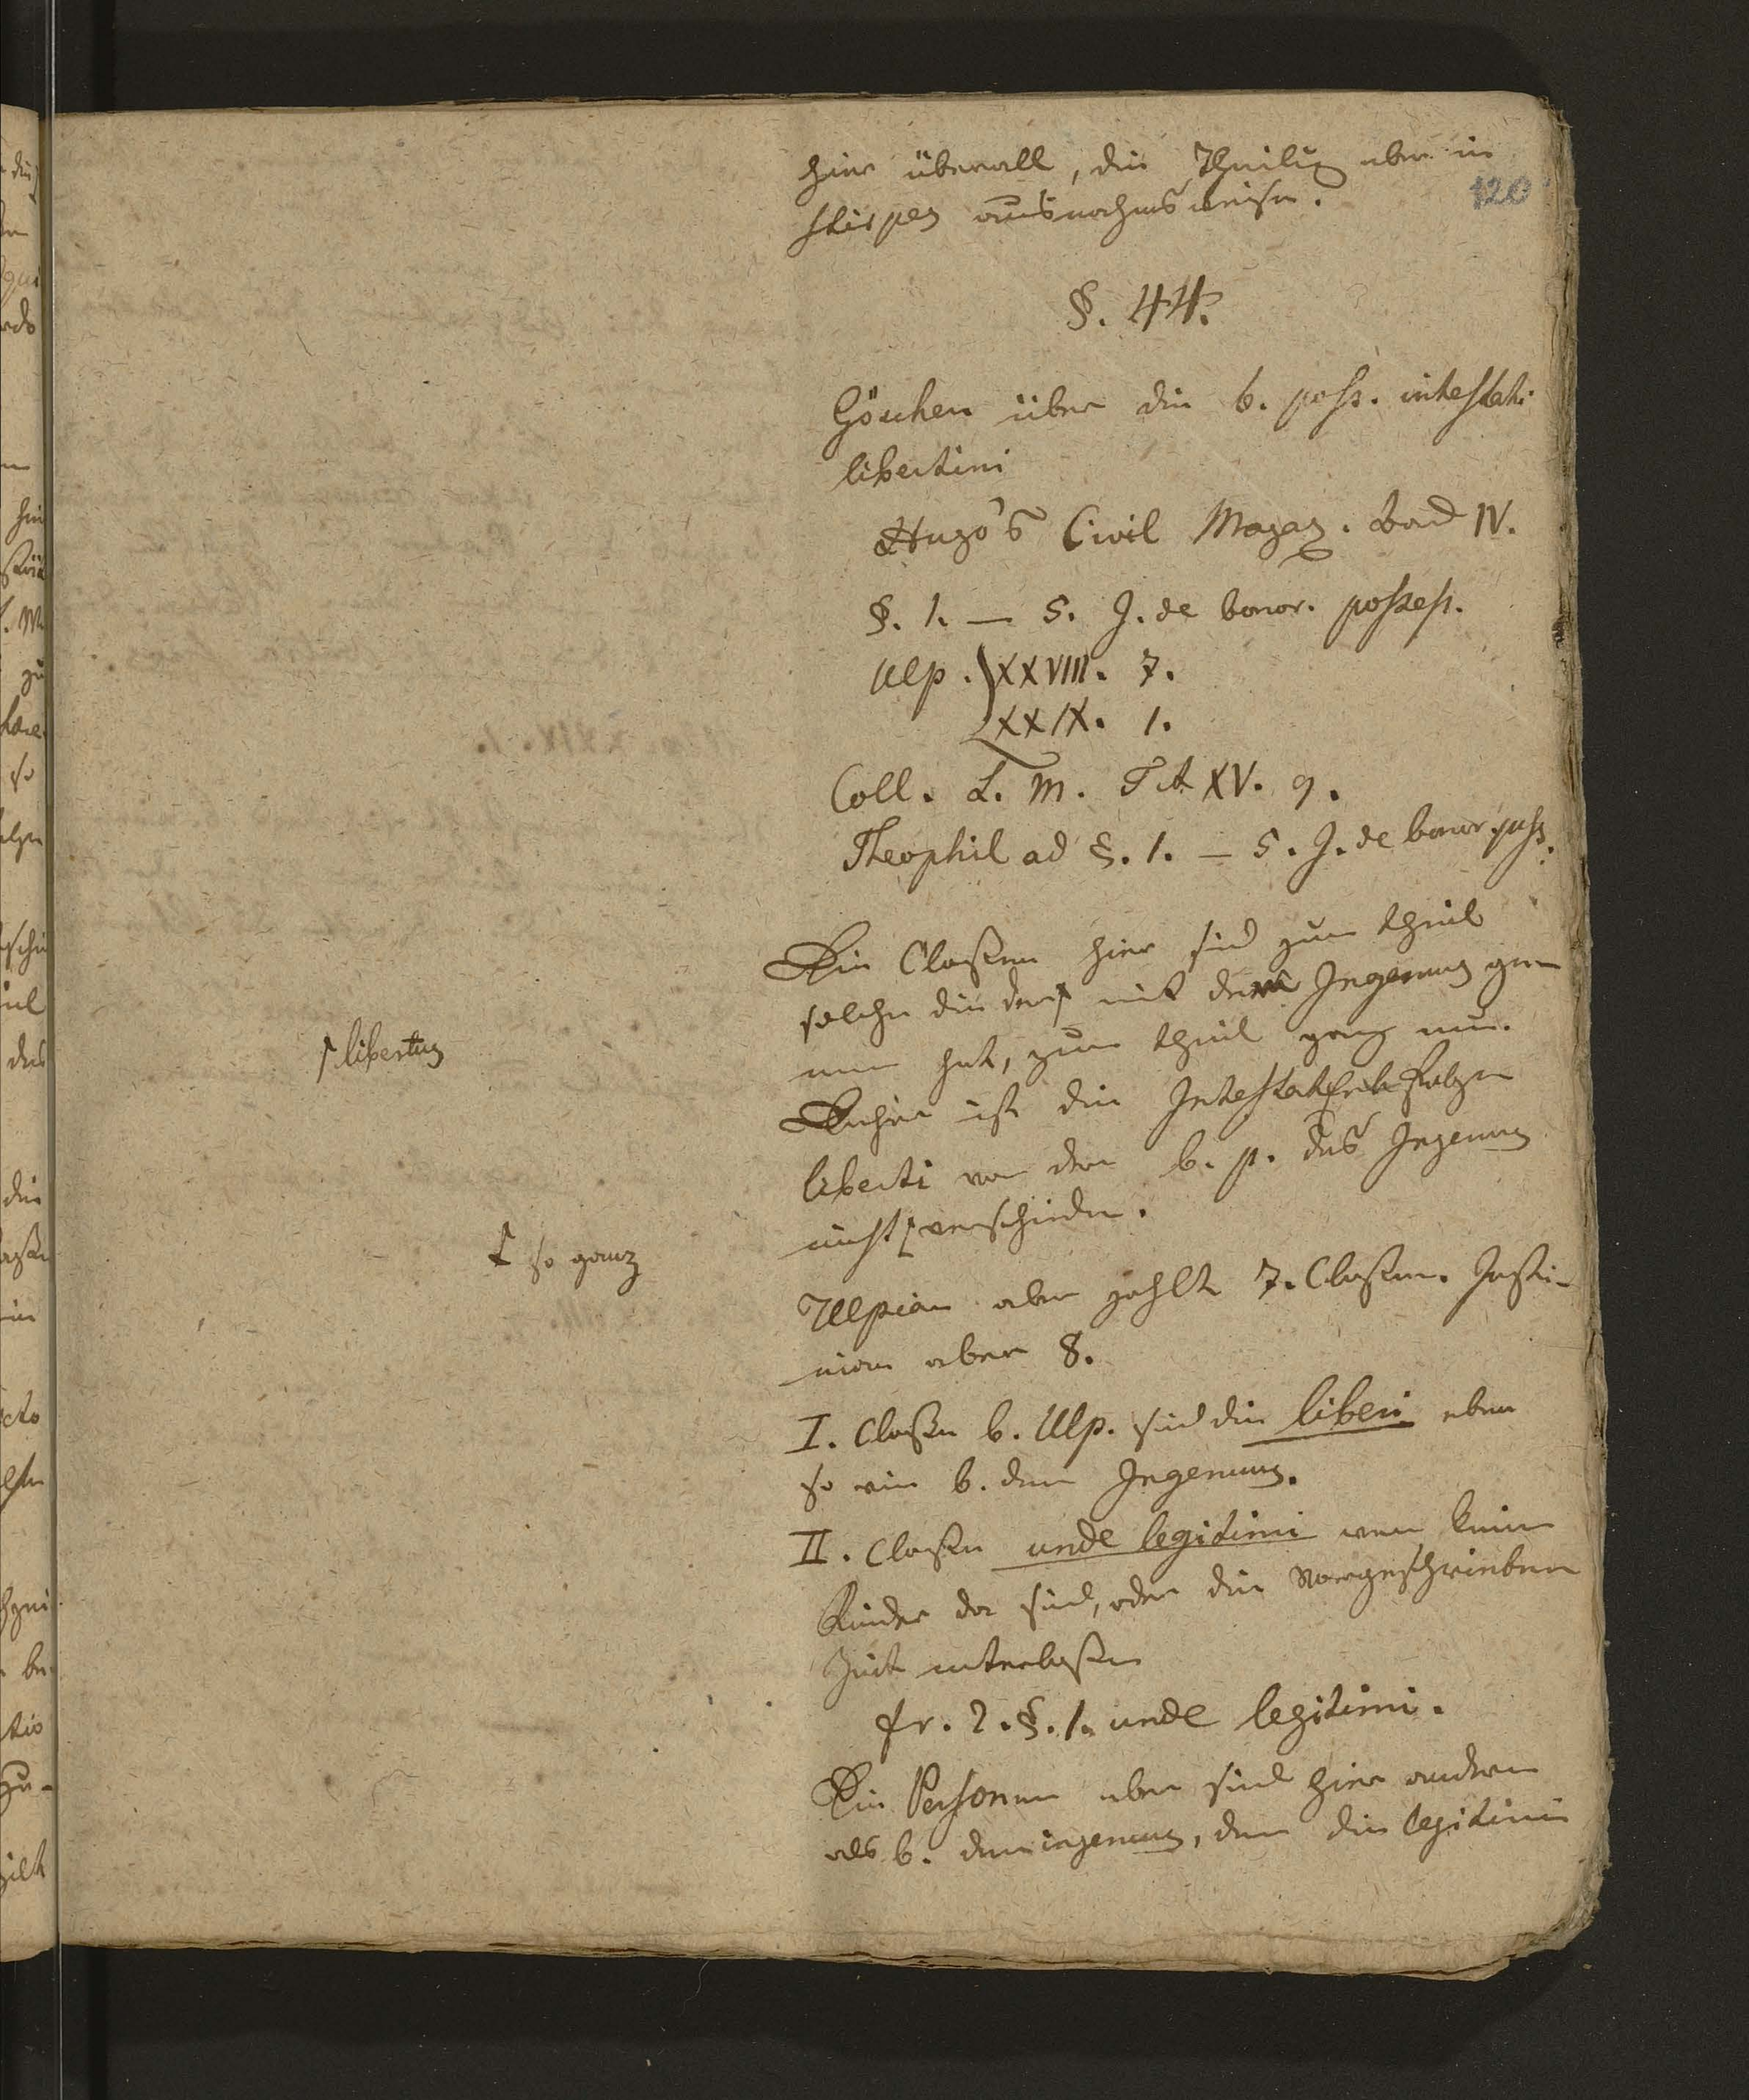 hier überall, die Theilung aber in
120
stirpes ausnahmsweise.
§. 44.
Göschen über die b. poss. intestati
libertini
Hugo's Civil Magaz. Band IV.
§. 1. — 5. J. de bonor. possess.
Ulp. XXVIII. 7.
XXIX. 1.
Coll. L. M. Tit XV. 9.
Theophil ad §. 1. — 5. J. de bonor. poss.
Die Classen hier sind zum theil
solche die der mit dem Ingenuus ge-
libertus
mein hat, zum theil ganz neu.
Daher ist die Intestaterbfolge
liberti von der b. p. des Ingenuus
nicht verschieden.
so ganz
Ulpian aber zahlt 7. Classen. Justi-
nian aber 8.
I. Classe b. Ulp. sind die liberi eben
so wie b. dem Ingenuus.
II. Classe unde legitimi wenn keine
Kinder da sind, oder die vorgeschriebene
Zeit unterlassen
fr. 2. §. 1. unde legitimi.
Die Personen aber sind hier andere
als b. dem ingenuus, denn die legitimi